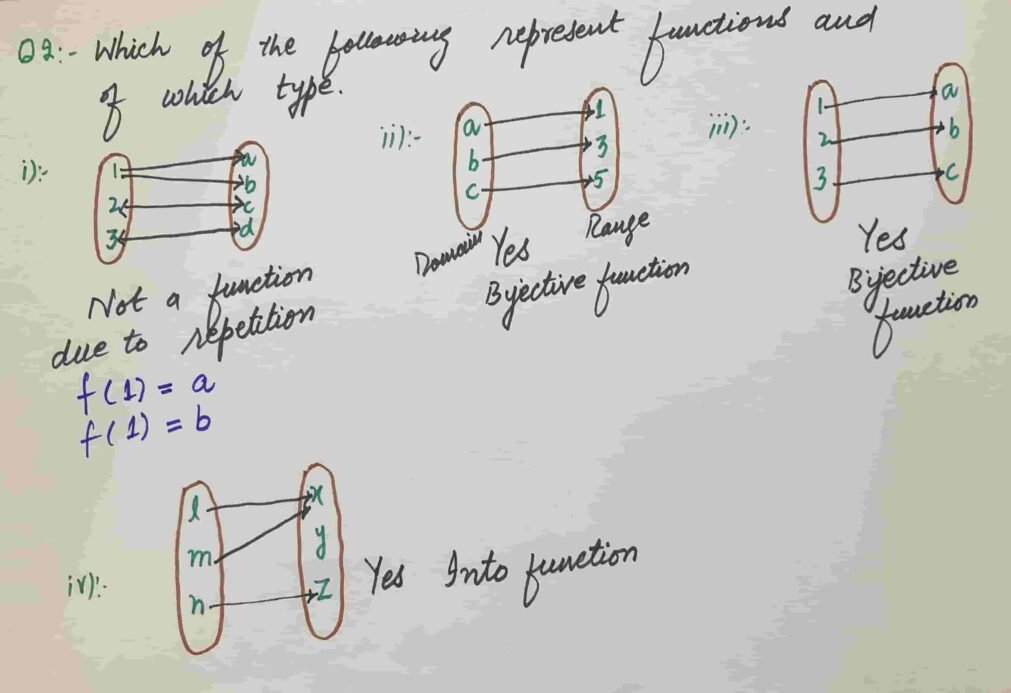 Q2:- Which of the following represent functions and
of which type.
i):-
1
2
3
a
b
c
d
Not a function
due to repetition
f(1) = a
f(1) = b
ii):-
a
b
c
1
3
5
Domain
Range
Yes
Bijective function
iii):-
1
2
3
a
b
c
Yes
Bijective
function
iv):-
l
m
n
x
y
z
Yes Into function